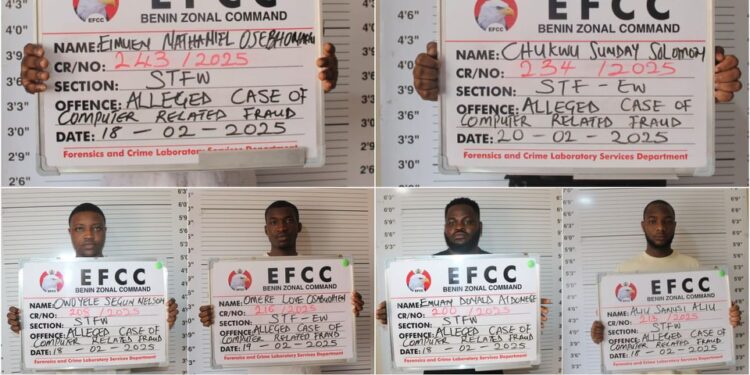 EFCC
BENIN ZONAL COMMAND
NAME: EIMUEN NATHANIEL
CR/NO: 243/2025
SECTION: STFW
OFFENCE: ALLEGED CASE OF
COMPUTER RELATED FRAUD
DATE: 18-02-2025
Forensics and Crime Laboratory Services Department
EFCC
BENIN ZONAL COMMAND
NAME: CHUKWU SUNDAY SOLOMON
CR/NO: 234/2025
SECTION: STF-EW
OFFENCE: ALLEGED CASE OF
COMPUTER RELATED FRAUD
DATE: 20-02-2025
Forensics and Crime Laboratory Services Department
EFCC
BENIN ZONAL COMMAND
NAME: OWOYELE SEGUN NELSON
CR/NO: 208/2025
SECTION: STFW
OFFENCE: ALLEGED CASE OF
COMPUTER RELATED FRAUD
DATE: 18-02-2025
Forensics and Crime Laboratory Services Department
EFCC
BENIN ZONAL COMMAND
NAME: OMERE LOVE
CR/NO: 216/2025
SECTION: STF-EW
OFFENCE: ALLEGED CASE OF
COMPUTER RELATED FRAUD
DATE: 19-02-2025
Forensics and Crime Laboratory Services Department
EFCC
BENIN ZONAL COMMAND
NAME: EMUAN DONALD
CR/NO: 200/2025
SECTION: STFW
OFFENCE: ALLEGED CASE OF
COMPUTER RELATED FRAUD
DATE: 18-02-2025
Forensics and Crime Laboratory Services Department
EFCC
BENIN ZONAL COMMAND
NAME: ALIU SANUSI ALIU
CR/NO: 215/2025
SECTION: STFW
OFFENCE: ALLEGED CASE OF
COMPUTER RELATED FRAUD
DATE: 18-02-2025
Forensics and Crime Laboratory Services Department